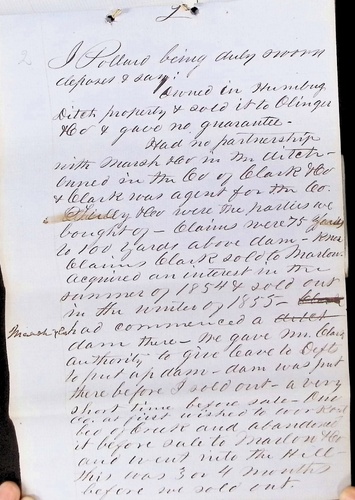 2
I Pollard being duly sworn
deposes & say;
Owned in Humbug
Ditch property & sold it to Olinger
& Co & gave no guarantee -
Had no partnership
with Marsh & Co in the ditch -
owned in the Co of Clark & Co
& Clark was agent for the Co.
& Co were the parties we
bought of - Claims were 75 yards
to 100 yards above dam - know
Claims Clark sold to Marlow.
acquired an interest in the
summer of 1854 & sold out
in the winter of 1855 -
Marsh & Co
had commenced a ditch
dam there - We gave Mr Clark
authority to give leave to Defts
to put up dam - dam was put
there before I sold out - a very
short time before sale - One
wished to work
bed of creek and abandoned
it before sale to Marlow & Co
and went into the Hill -
this was 3 or 4 months
before we sold out.